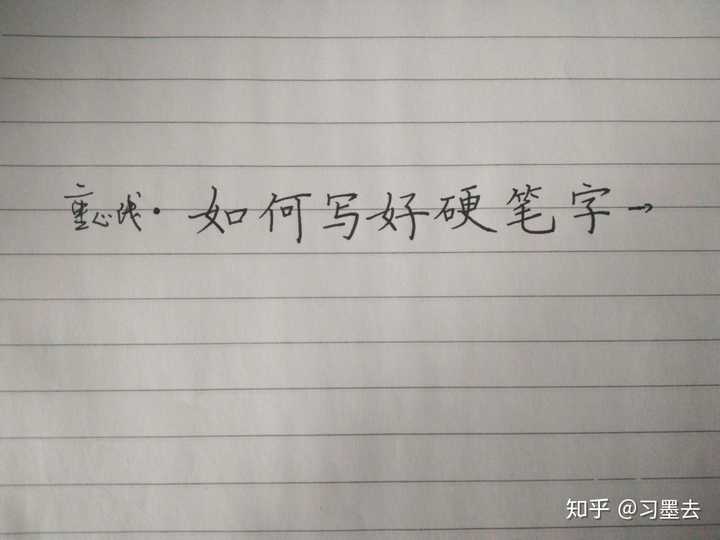 重心线·如何写好硬笔字→
知乎 @习墨去